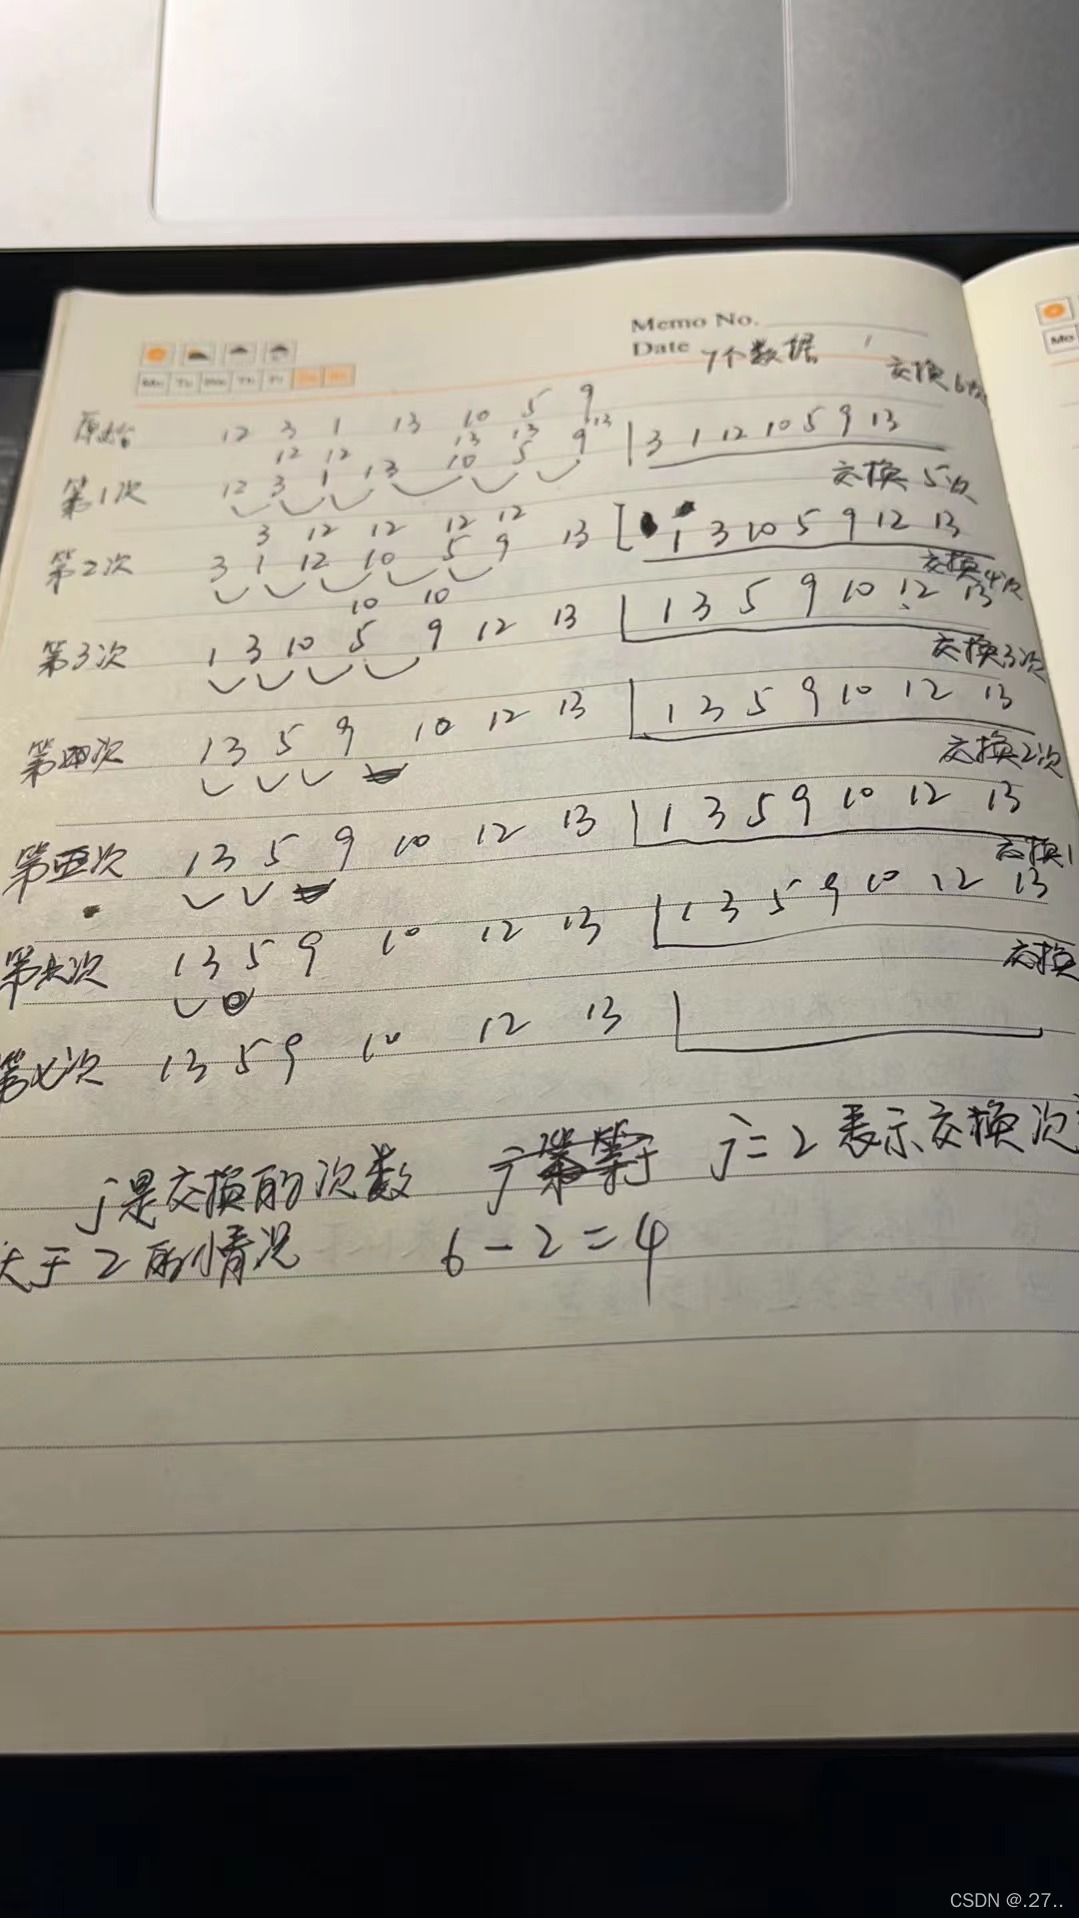 Memo No.
Date 7个数据
Mo Tu We Th Fr Sa Su
Mo
交换6次
原始 12 3 1 13 10 5 9
12 12 13 13 13
第1次 12 3 1 13 10 5 9 3 1 12 10 5 9 13
交换5次
3 12 12 12 12
第2次 3 1 12 10 5 9 13 1 3 10 5 9 12 13
交换4次
10 10
第3次 1 3 10 5 9 12 13 1 3 5 9 10 12 13
交换3次
第四次 1 3 5 9 10 12 13 1 3 5 9 10 12 13
交换2次
第五次 1 3 5 9 10 12 13 1 3 5 9 10 12 13
交换1
第六次 1 3 5 9 10 12 13 1 3 5 9 10 12 13
交换
第七次 1 3 5 9 10 12 13
j是交换的次数 j j=2 表示交换次
大于2的情况 6-2=4
CSDN @.27..